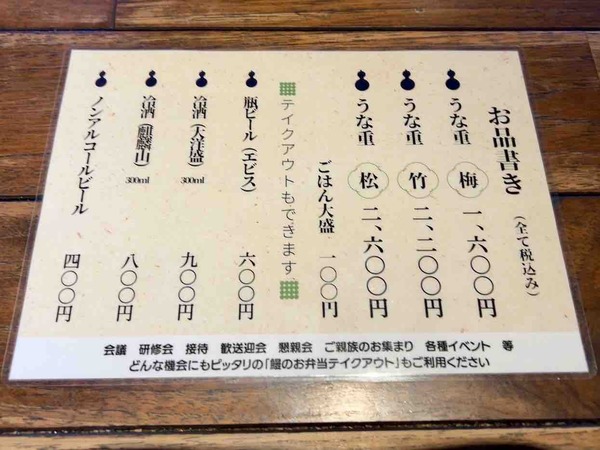 お品書き
(全て税込み)
うな重 梅 一、六〇〇円
うな重 竹 二、二〇〇円
うな重 松 二、六〇〇円
ごはん大盛 一〇〇円
テイクアウトもできます
瓶ビール(エビス) 六〇〇円
冷酒(大洋盛) 300ml 九〇〇円
冷酒(麒麟山) 300ml 八〇〇円
ノンアルコールビール 四〇〇円
会議 研修会 接待 歓送迎会 懇親会 ご親族のお集まり 各種イベント 等
どんな機会にもピッタリの「鰻のお弁当テイクアウト」もご利用ください